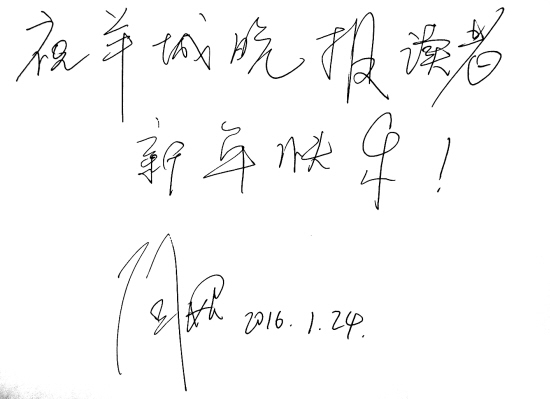 祝羊城晚报读者
新年快乐！
2016.1.24.